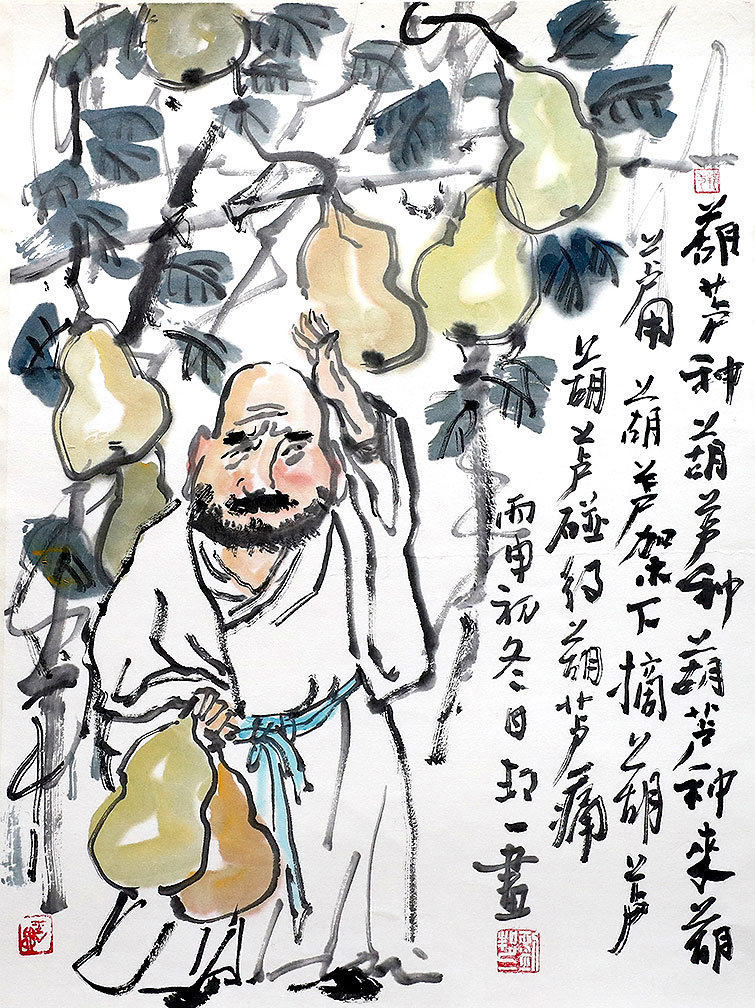 葫芦种葫芦种葫芦种来葫
芦用葫芦架下摘葫芦
葫芦碰得葫芦痛
丙申初冬日邦一畫